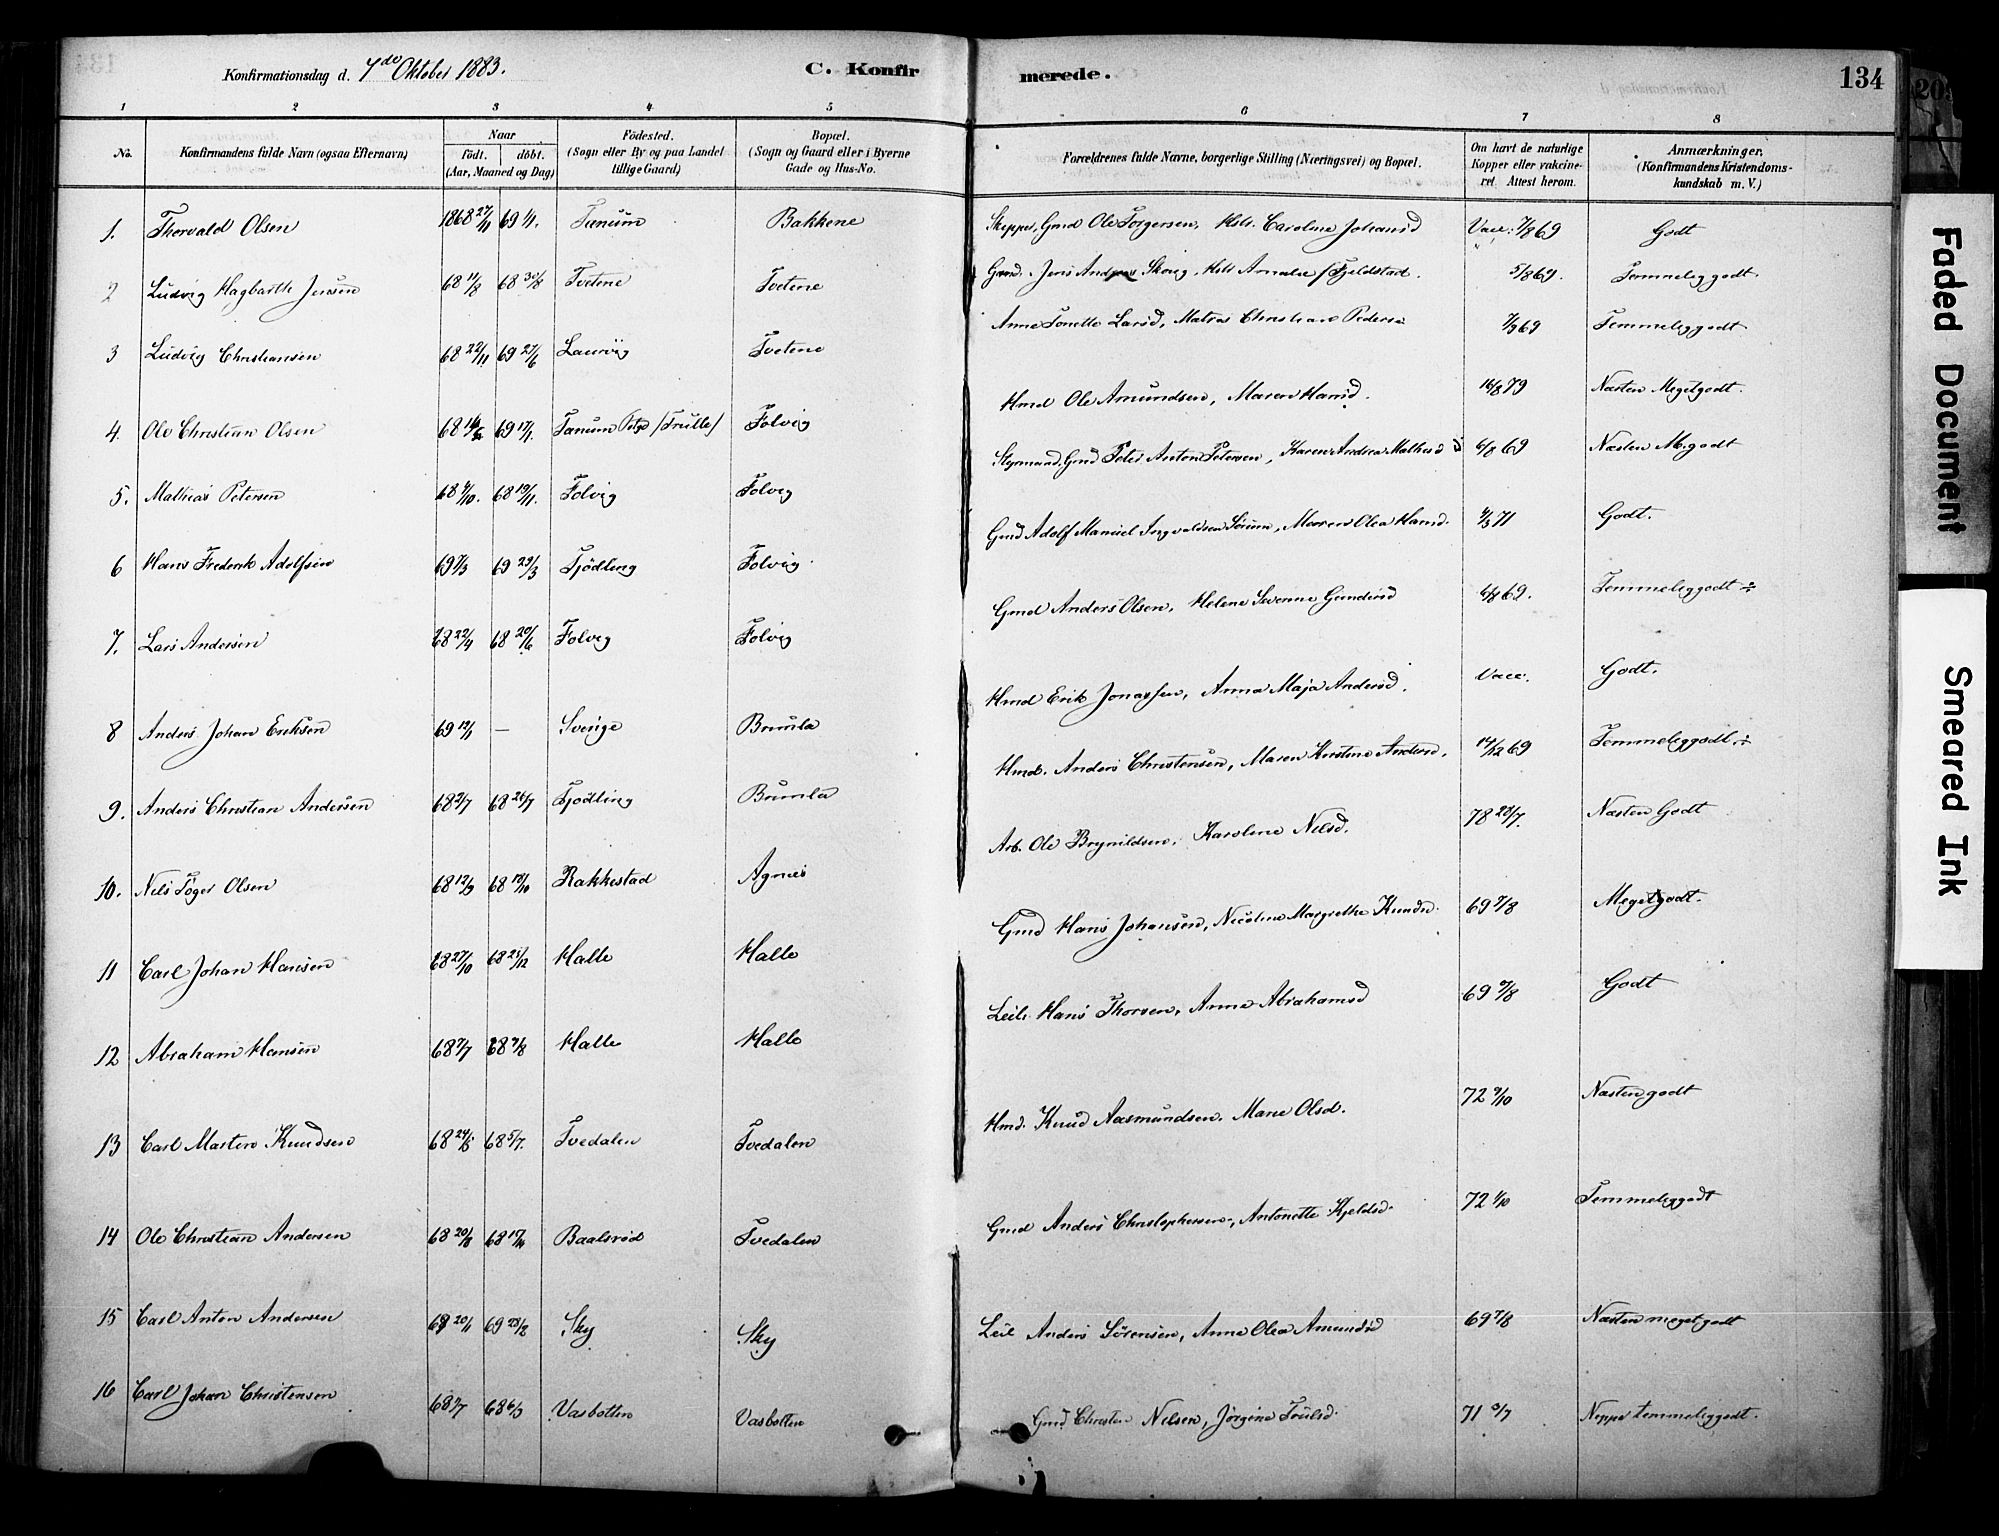 Konfirmationsdag d. 7de Oktober 1883.
C. Konfirmerede.
134
1 2 3 4 5 6 7 8
No.
Konfirmandens fulde Navn (ogsaa Efternavn)
Naar
født. døbt.
(Aar, Maaned og Dag)
Fødested.
(Sogn eller By og paa Landet
tillige Gaard)
Bopæl.
(Sogn og Gaard eller i Byerne
Gade og Hus-No.
Forældrenes fulde Navne, borgerlige Stilling (Næringsvei) og Bopæl.
Om havt de naturlige
Kopper eller vakcine-
ret. Attest herom.
Anmærkninger,
(Konfirmandens Kristendoms-
kundskab m. V.)
1. Thorvald Olsen 1868 27/11 69 1/1. Tanum Bakkene Skipper, Gmd Ole Torgersen, Hstr. Caroline Johansd Vacc. 7/8 69 Godt
2 Ludvig Hagbarth Jensen 68 11/8 68 30/8 Tvetene Tvetene Gmd. Jens Andreas Skovig, Hstr Amalie Fjeldstad. 5/8 69. Temmeliggodt.
3 Ludvig Christiansen 68 22/11 69 27/6 Laurvig Tvetene Anna Tonette Larsd, Matros Christian Peders 7/9 69 Temmeliggodt.
4. Ole Christian Olsen 68 69 17/1 Tanum (Trulle) Folvig Hmd Ole Amundsen, Maren Hansd. 16/8 79 Næsten Megetgodt.
5. Mathias Petersen 68 4/10. 68 19/11. Folvig Folvig Styrmand, Gmd Peter Anton Petersen, Karen Andrea Mathisd 6/8 69 Næsten M.godt
6 Hans Frederik Adolfsen 69 7/3 69 29/3 Tjødling Folvig Gmd Adolf Manuel Ingvaldsen Sørum, Maren Olea Hansd. 4/3 71 Godt.
7. Lars Andersen 68 22/4 68 20/6 Folvig Folvig Gmd Anders Olsen, Helene Severine Gundersd 6/8 69. Temmeliggodt ÷
8 Anders Johan Eriksen 69 12/1 — Sverige Brunla Hmd Erik Jonassen, Anna Maja Andersd. Vacc. Godt.
9. Anders Christian Andersen 68 2/7 68 26/7 Tjødling Brunla Hmd. Anders Christensen, Maren Kirstine Andersd. 14/12 69 Temmeliggodt ÷
10. Nels Tøger Olsen 68 12/9 68 18/10 Rakkestad Agnes Arb. Ole Brynildsen, Karoline Nilsd. 78 23/7. Næsten Godt
11 Carl Johan Hansen 68 27/10 68 25/12 Halle Halle Gmd Hans Johansen, Nicoline Margrethe Knudsd. 69 7/8 Megetgodt.
12 Abraham Hansen 68 7/7 68 9/8 Halle Halle Leil. Hans Thorsen, Anne Abrahamsd 69 7/8 Godt
13 Carl Martin Knudsen 68 24/5 68 5/7. Tvedalen Tvedalen Hmd. Knud Aasmundsen. Marie Olsd. 72 9/10 Næsten godt
14 Ole Christian Andersen 68 20/8 68 Baalsrød Tvedalen Gmd Anders Christophersen, Antonette Kjeldsd. 72 1/10 Temmeliggodt
15 Carl Anton Andersen 69 20/1 69 28/2 Sky Sky Leil Anders Sørensen, Anne Olea Amundsd 69 7/8 Næsten megetgodt
16 Carl Johan Christensen 68 7/7 68 6/9 Vasbotten Vasbotten Gmd Christen Nelsen, Jørgine Trulsd. 71 3/7 Neppe temmeliggodt.
Faded Document
Smeared Ink